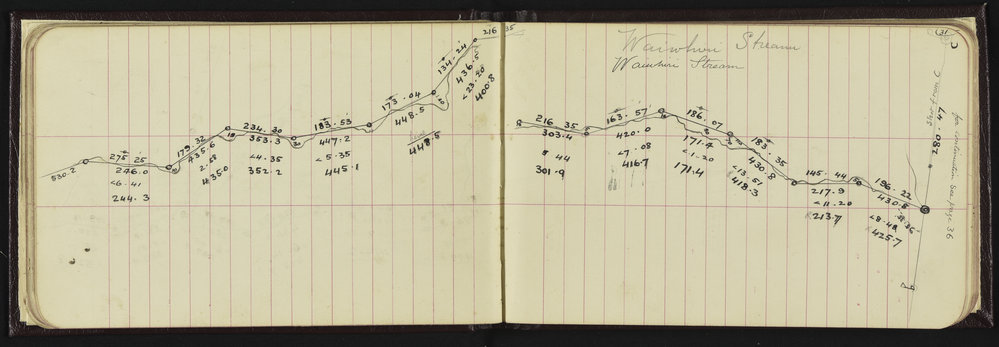 216 35
134·24
436·5
<23·20
400·8
173·04
448·5
448·5
183·53
447·2
<5·35
445·1
234·30
353·3
<4·35
352·2
179·32
435·6
435·0
275 25
246·0
<6·41
244·3
530·2
31
Waiwhiri Stream
Waiwhiri Stream
216 35
303·4
8 44
301·9
163·57
420·0
<7·08
416·7
186·07
171·4
<1·20
171·4
183·35
430·8
<13·51
418·3
145·44
217·9
<11·20
213·7
196·22
430·8
<8·48
425·7
47·082
for continuation see page 36